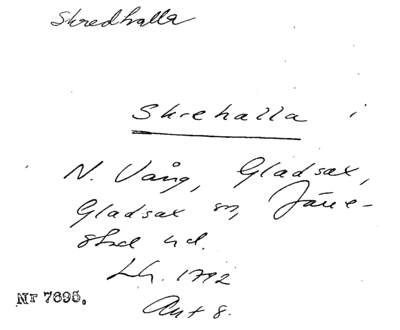 Skredhalla
Skrehalla i
N. Vång, Gladsax,
Gladsax sn, Järre-
stad hd.
Lh. 1792
Akt 8.
Nr 7695.